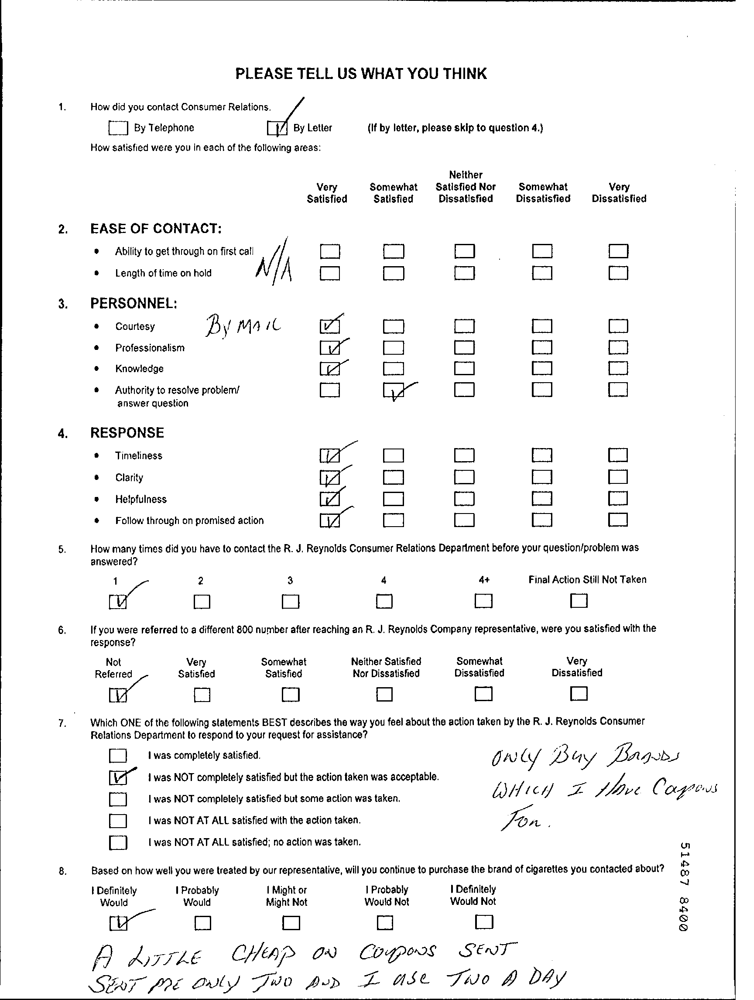 PLEASE TELL US WHAT YOU THINK
1. How did you contact Consumer Relations.
By Telephone By Letter (If by letter, please skip to question 4.)
How satisfied were you in each of the following areas:
Very Satisfied Somewhat Satisfied Neither Satisfied Nor Dissatisfied Somewhat Dissatisfied Very Dissatisfied
2. EASE OF CONTACT:
• Ability to get through on first call
• Length of time on hold N/A
3. PERSONNEL:
• Courtesy By MAIL
• Professionalism
• Knowledge
• Authority to resolve problem/
answer question
4. RESPONSE
• Timeliness
• Clarity
• Helpfulness
• Follow through on promised action
5. How many times did you have to contact the R. J. Reynolds Consumer Relations Department before your question/problem was
answered?
1 2 3 4 4+ Final Action Still Not Taken
6. If you were referred to a different 800 number after reaching an R. J. Reynolds Company representative, were you satisfied with the
response?
Not Referred Very Satisfied Somewhat Satisfied Neither Satisfied Nor Dissatisfied Somewhat Dissatisfied Very Dissatisfied
7. Which ONE of the following statements BEST describes the way you feel about the action taken by the R. J. Reynolds Consumer
Relations Department to respond to your request for assistance?
I was completely satisfied.
I was NOT completely satisfied but the action taken was acceptable.
I was NOT completely satisfied but some action was taken.
I was NOT AT ALL satisfied with the action taken.
I was NOT AT ALL satisfied; no action was taken.
ONLY Buy Brands
WHICH I Have Coupons
For.
8. Based on how well you were treated by our representative, will you continue to purchase the brand of cigarettes you contacted about?
I Definitely Would I Probably Would I Might or Might Not I Probably Would Not I Definitely Would Not
A LITTLE CHEAP ON COUPONS SENT
SENT ME ONLY TWO AND I USE TWO A DAY
51487 8400